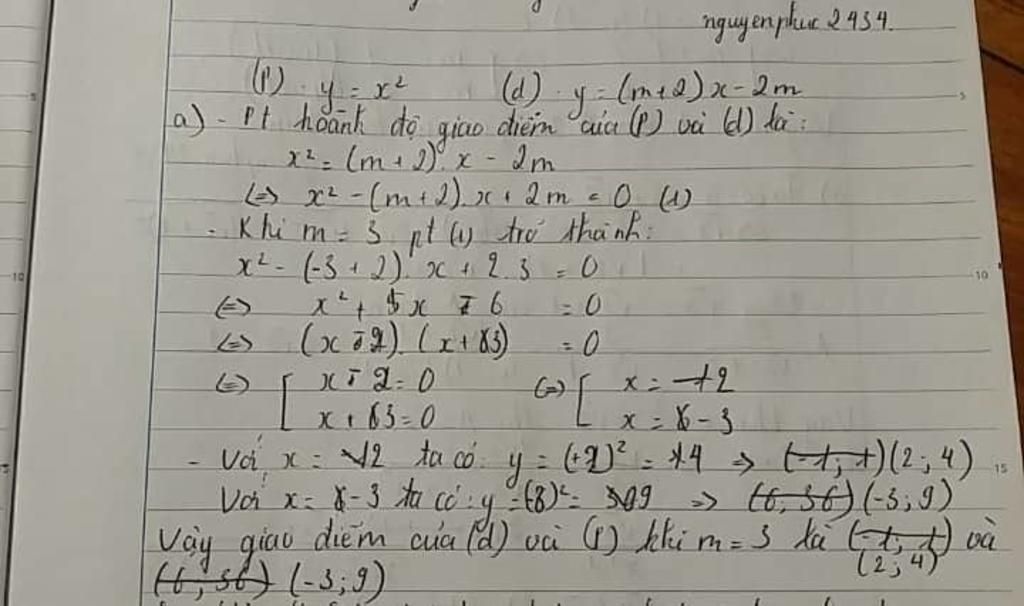 nguyenphuc 2434.
(P). y = x² (d). y = (m+2) x - 2m
a) - Pt hoành độ giao điểm của (P) và (d) là:
x² = (m+2). x - 2m
(=) x² - (m+2). x + 2m = 0 (1)
- Khi m = 3 pt (1) trở thành:
x² - (-3 + 2). x + 2.3 = 0
(=) x² + x - 6 = 0
(=) (x - 2). (x + 3) = 0
(=) [ x - 2 = 0 (=) [ x = 2
x + 3 = 0 x = -3
- Với x = 2 ta có: y = (+2)² = 4 => (-1; 1) (2; 4)
Với x = -3 ta có: y = (-3)² = 9 => (6; 36) (-3; 9)
Vậy giao điểm của (d) và (P) khi m = 3 là (-1; 1) và
(2; 4)
(6; 36) (-3; 9)